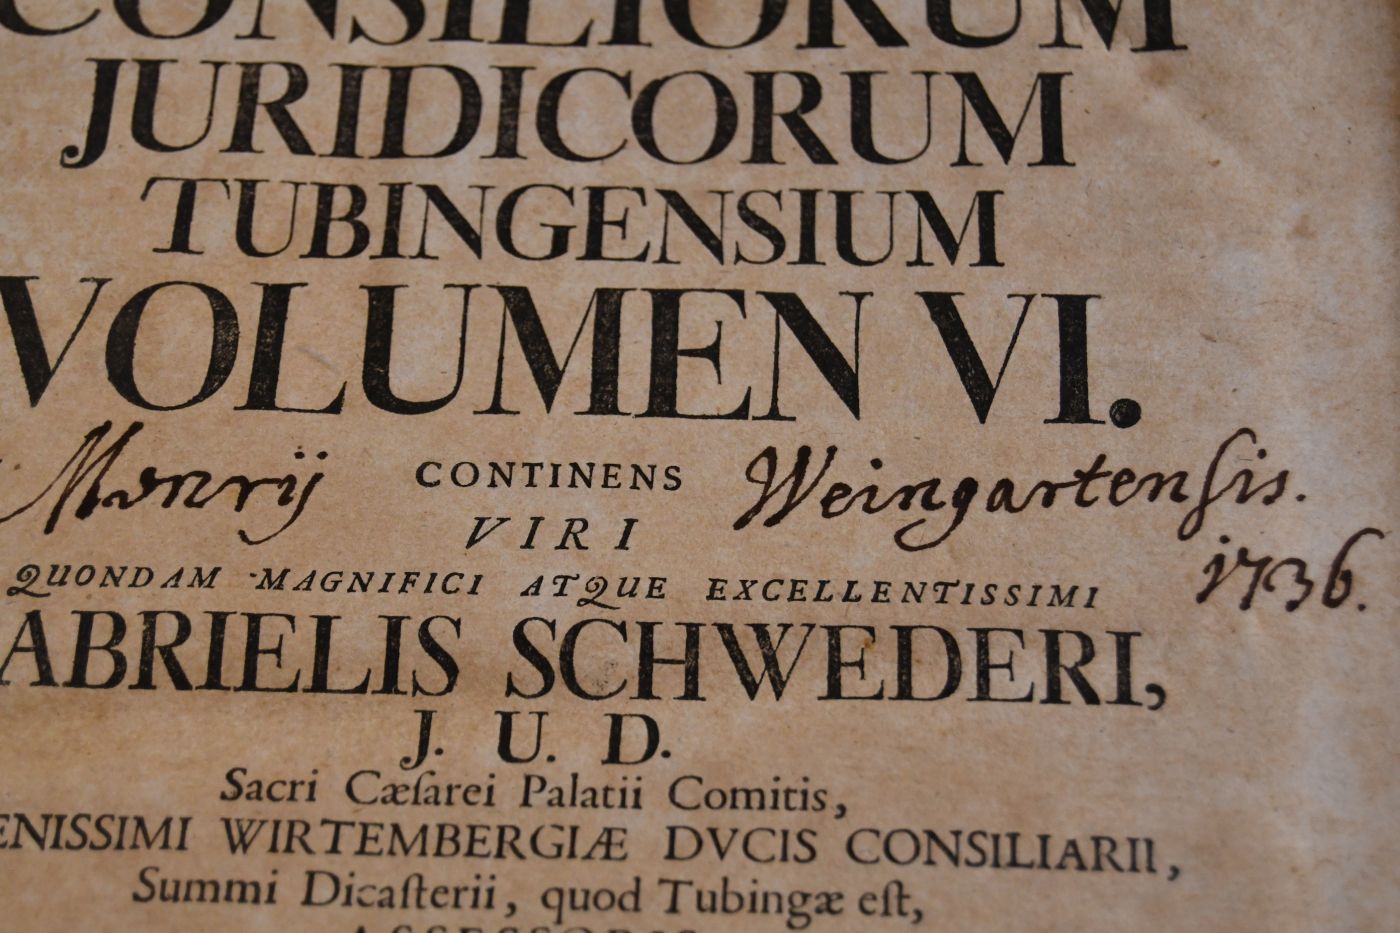 CONSILIORUM
JURIDICORUM
TUBINGENSIUM
VOLUMEN VI.
CONTINENS Weingartensis.
VIRI
1736.
QUONDAM MAGNIFICI ATQUE EXCELLENTISSIMI
ABRIELIS SCHWEDERI,
J. U. D.
Sacri Cæſarei Palatii Comitis,
ENISSIMI WIRTEMBERGIÆ DVCIS CONSILIARII,
Summi Dicaſterii, quod Tubingæ eſt,
ASSESSORIS